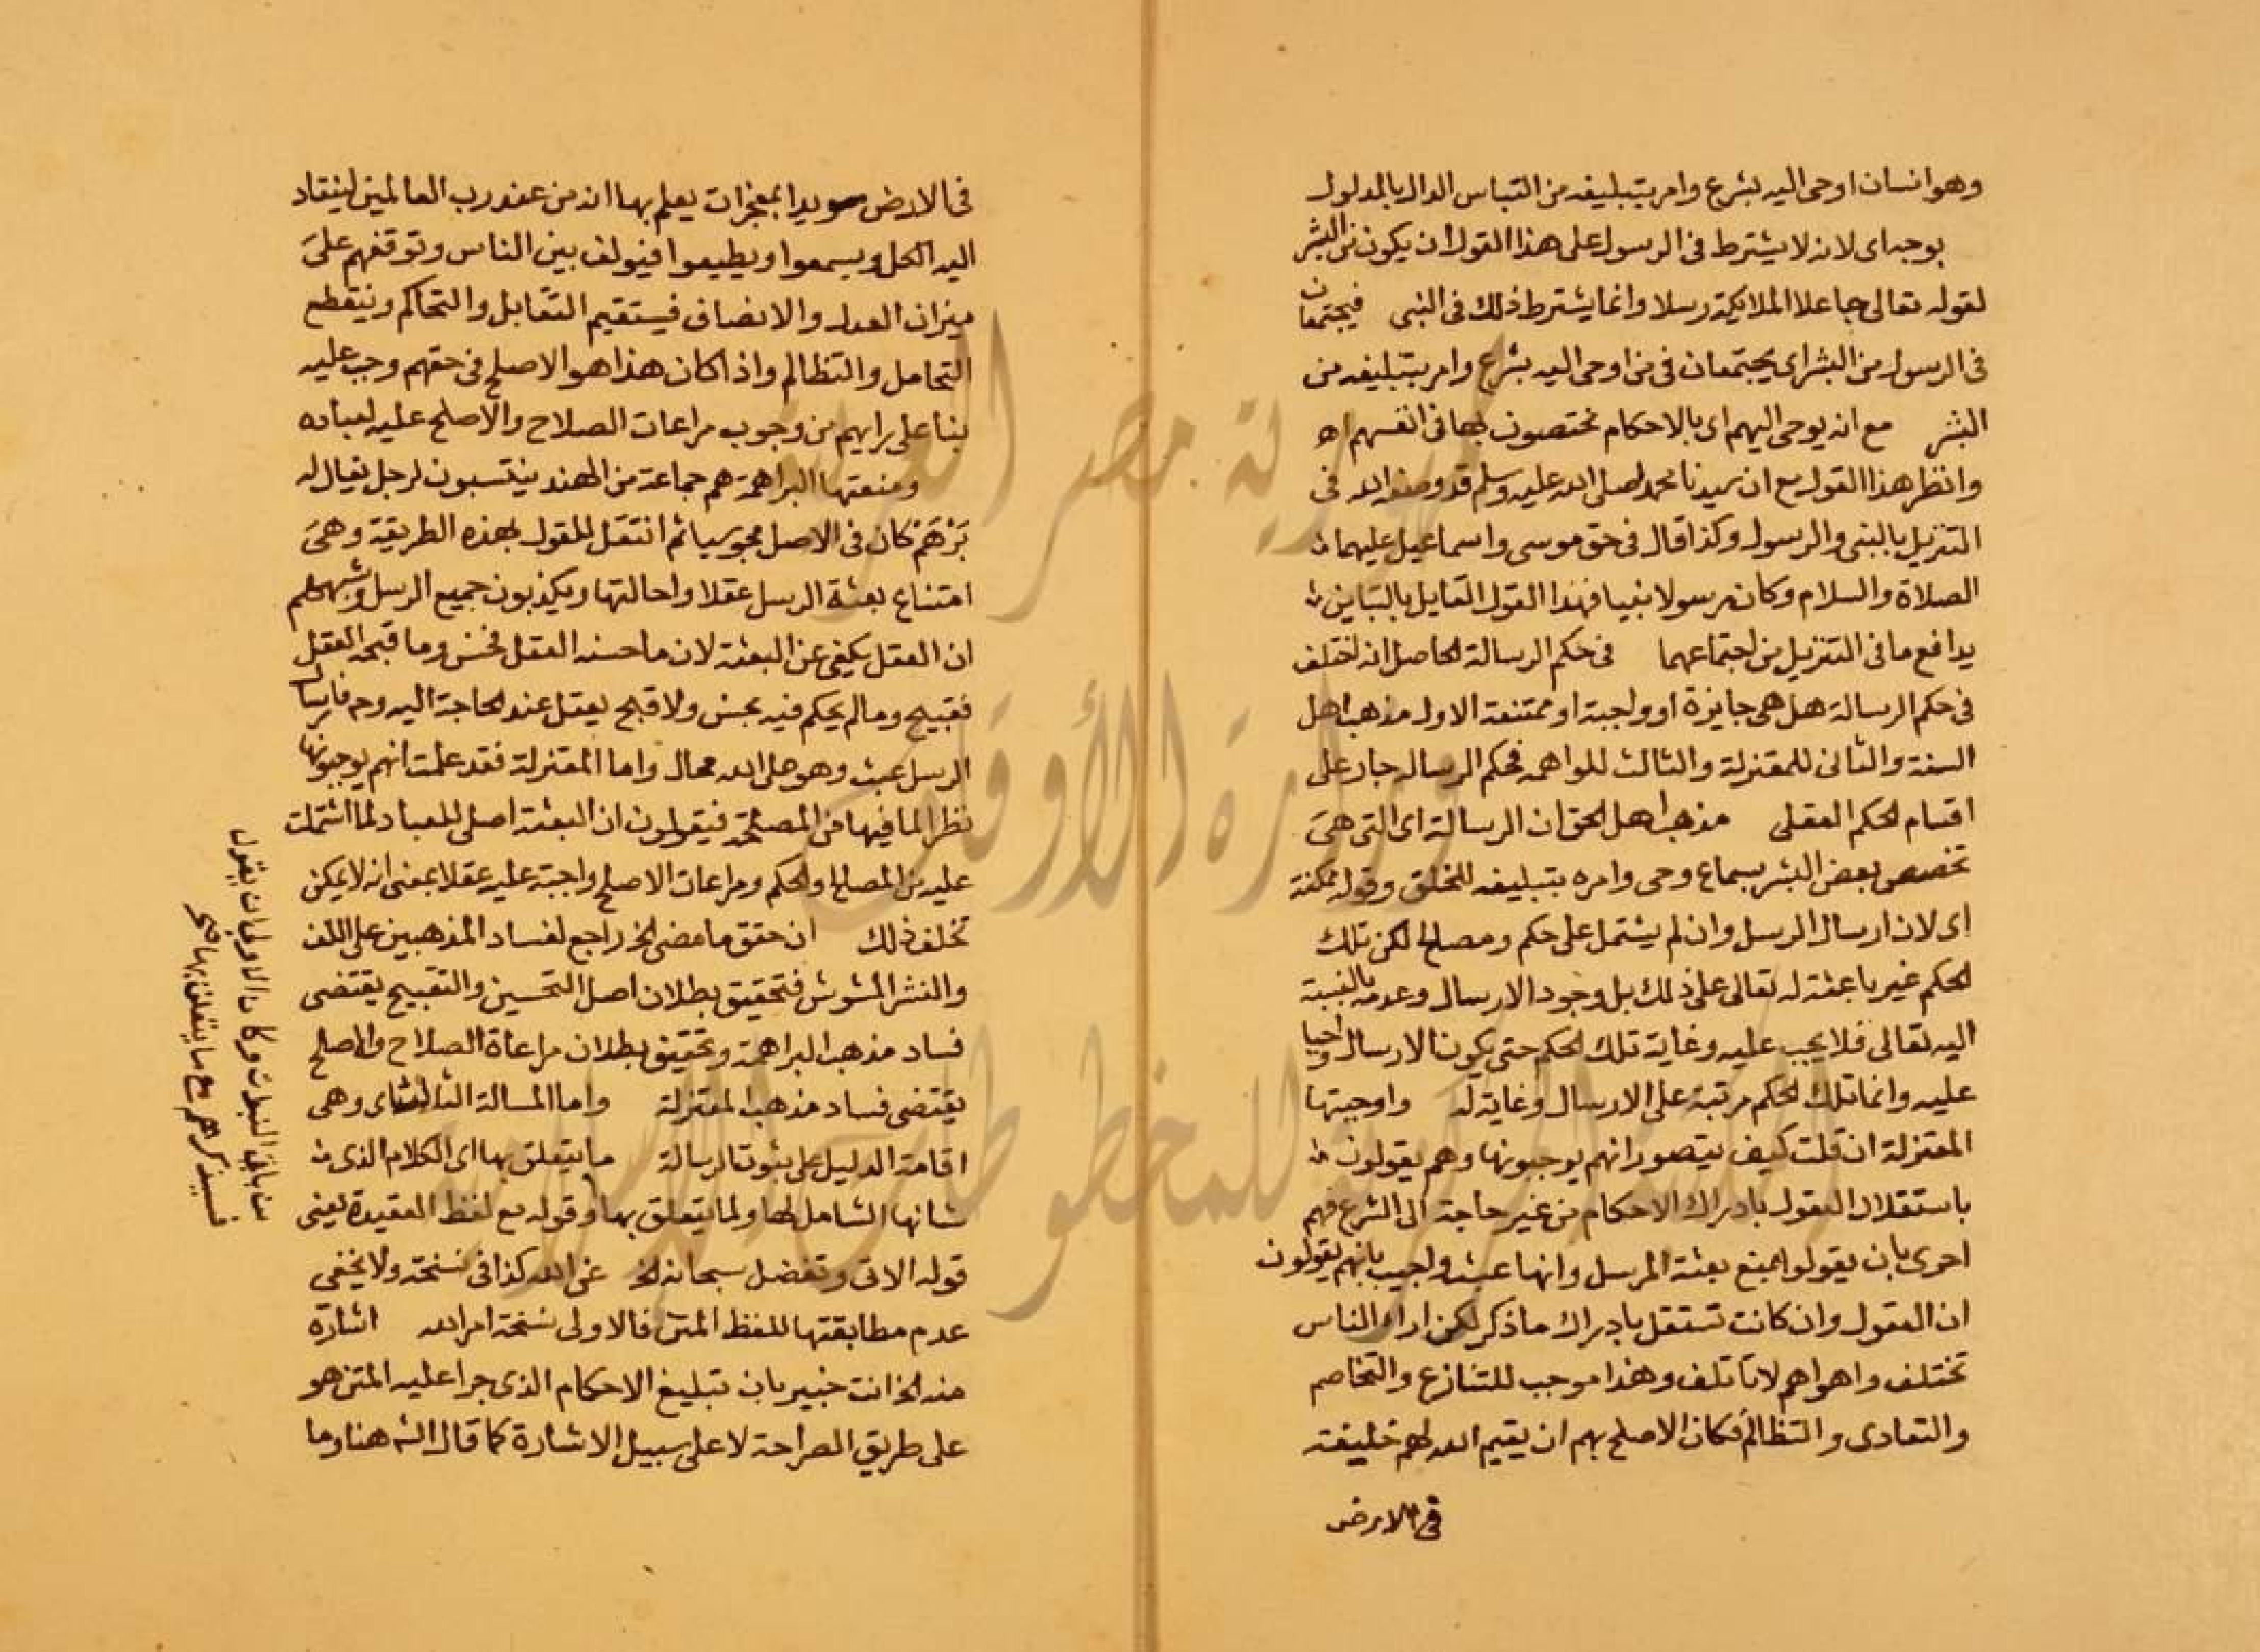 وهو انسان اوحى اليه بشرع وامر بتبليغه من التباس الدال بالمدلول
بوجه اى لانه لا يشترط فى الرسول على هذا القول ان يكون من البشر
لقوله تعالى جاعلا الملايكة رسلا وانما يشترط ذلك فى النبى فيجتمعان
فى الرسول من البشر اى يجتمعان فى من اوحى اليه بشرع وامر بتبليغه من
البشر مع انه يوحى اليهم اى بالاحكام مختصون بها فى انفسهم اه
وانظر هذا القول مع ان سيدنا محمد اصلى الله عليه وسلم قد وصفه الله فى
التنزيل بالنبى والرسول وكذا قال فى حق موسى واسماعيل عليهما
الصلاة والسلام وكان رسولا نبيا فهذا القول القايل بالتباين
يدافع ما فى التنزيل من اجتماعهما فى حكم الرسالة الحاصل انه اختلف
فى حكم الرسالة هل هى جايزة او واجبة او ممتنعة الاول مذهب اهل
السنة والثانى للمعتزلة والثالث للبراهمه فحكم الرساله جار على
اقسام الحكم العقلى مذهب اهل الحق ان الرسالة اى التى هى
تخصص بعض البشر بسماع وحى وامره بتبليغه للخلق وقوله ممكنة
اى لان ارسال الرسل وان لم يشتمل على حكم ومصالح لكن تلك
الحكم غير باعثة له تعالى على ذلك بل وجود الارسال وعدمه بالنسبة
اليه تعالى فلا يجب عليه وغاية تلك الحكم حتى يكون الارسال واجبا
عليه وانما تلك الحكم مرتبة على الارسال وغاية له واوجبتها
المعتزلة ان قلت كيف يتصور انهم يوجبونها وهم يقولون
باستقلال العقول بادراك الاحكام من غير حاجة الى الشرع فهم
احرى بان يقولوا بمنع بعثة الرسل وانها عبث واجيب بانهم يقولون
ان العقول وان كانت تستقل بادراك ما ذكر لكن اراء الناس
تختلف واهواهم لا تأتلف وهذا موجب للتنازع والتخاصم
والتعادى والتظالم فكان الاصلح بهم ان يقيم الله لهم خليفة
فى الارض
فى الارض مويدا بمعجزات يعلم بها انه من عند رب العالمين لينقاد
اليه الكل ويسمعوا ويطيعوا فيولف بين الناس وتوقفهم على
ميزان العدل والانصاف فيستقيم التقابل والتحاكم وينقطع
التحامل والتظالم واذا كان هذا هو الاصلح فى حقهم وجب عليه
بنا على رايهم من وجوب مراعات الصلاح والاصلح عليه لعباده
ومنعتها البراهمة هم جماعة من الهند ينتسبون لرجل يقال له
بَرْهَمْ كان فى الاصل مجوسيا ثم انتقل للقول بهذه الطريقة وهى
امتناع بعثة الرسل عقلا واحالتها ويكذبون جميع الرسل وشبهتهم
ان العقل يكفى عن البعثة لان ما حسنه العقل فحسن وما قبحه العقل
فقبيح وما لم يحكم فيه بحسن ولا قبح يعقل عند الحاجة اليه وح فارسال
الرسل عبث وهو على الله محال واما المعتزلة فقد علمت انهم يوجبونها
نظرا لما فيها من المصلحة فيقولون ان البعثة اصلى للعباد لما اشتملت
عليه من المصالح والحكم ومراعات الاصلح واجبة عليه عقلا بمعنى انه لا يمكن
تخلف ذلك ان حقق ما مضى الخ راجع لفساد المذهبين على اللف
والنشر المشوش فتحقيق بطلان اصل التحسين والتقبيح يقتضى
فساد مذهب البراهمة وتحقيق بطلان مراعاة الصلاح والاصلح
يقتضى فساد مذهب المعتزلة واما المسالة الثالثة اى وهى
اقامة الدليل على ثبوت الرسالة ما يتعلق بها اى الكلام الذى
شانها الشامل لها ولما يتعلق بها وقوله مع لفظ العقيدة يعنى
قوله الاتى وتفضل سبحانه الخ عن الله كذا فى نسخة ولا يخفى
عدم مطابقتها للفظ المتن فالاولى نسخة امر الله اشارة
منه الخ انت خبير بان تبليغ الاحكام الذى جرا عليه المتن هو
على طريق الصراحة لا على سبيل الاشارة كما قال الشه هنا وما
فسيذكرهم مع ما يتعلق بها